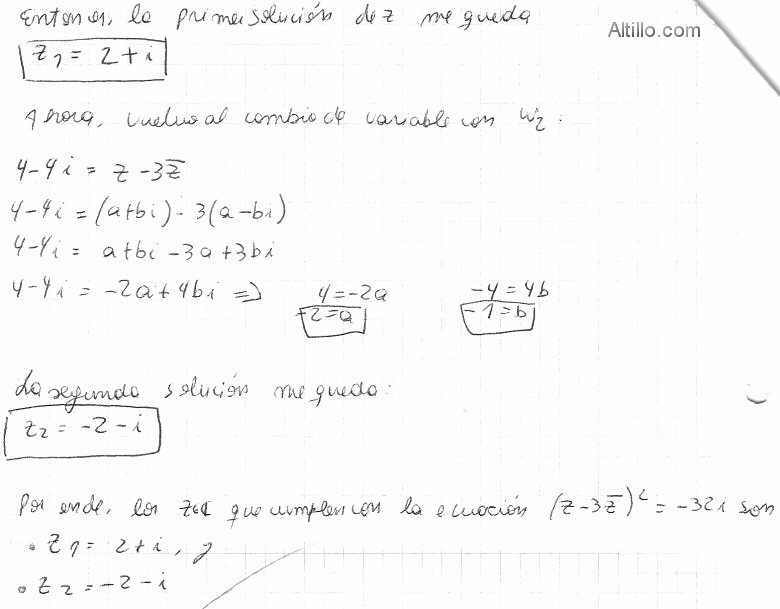 Entonces, la primer solución de z me queda
Altillo.com
z₁ = 2+i
Ahora, vuelvo al cambio de variable con w₂:
4-4i = z - 3z̅
4-4i = (a+bi) - 3(a-bi)
4-4i = a+bi - 3a+3bi
4-4i = -2a+4bi ⇒ 4=-2a -4=4b
-2=a -1=b
La segunda solución me queda:
z₂ = -2-i
Por ende, los z∈ℂ que cumplen con la ecuación (z-3z̅)² = -32i son
• z₁ = 2+i, y
• z₂ = -2-i